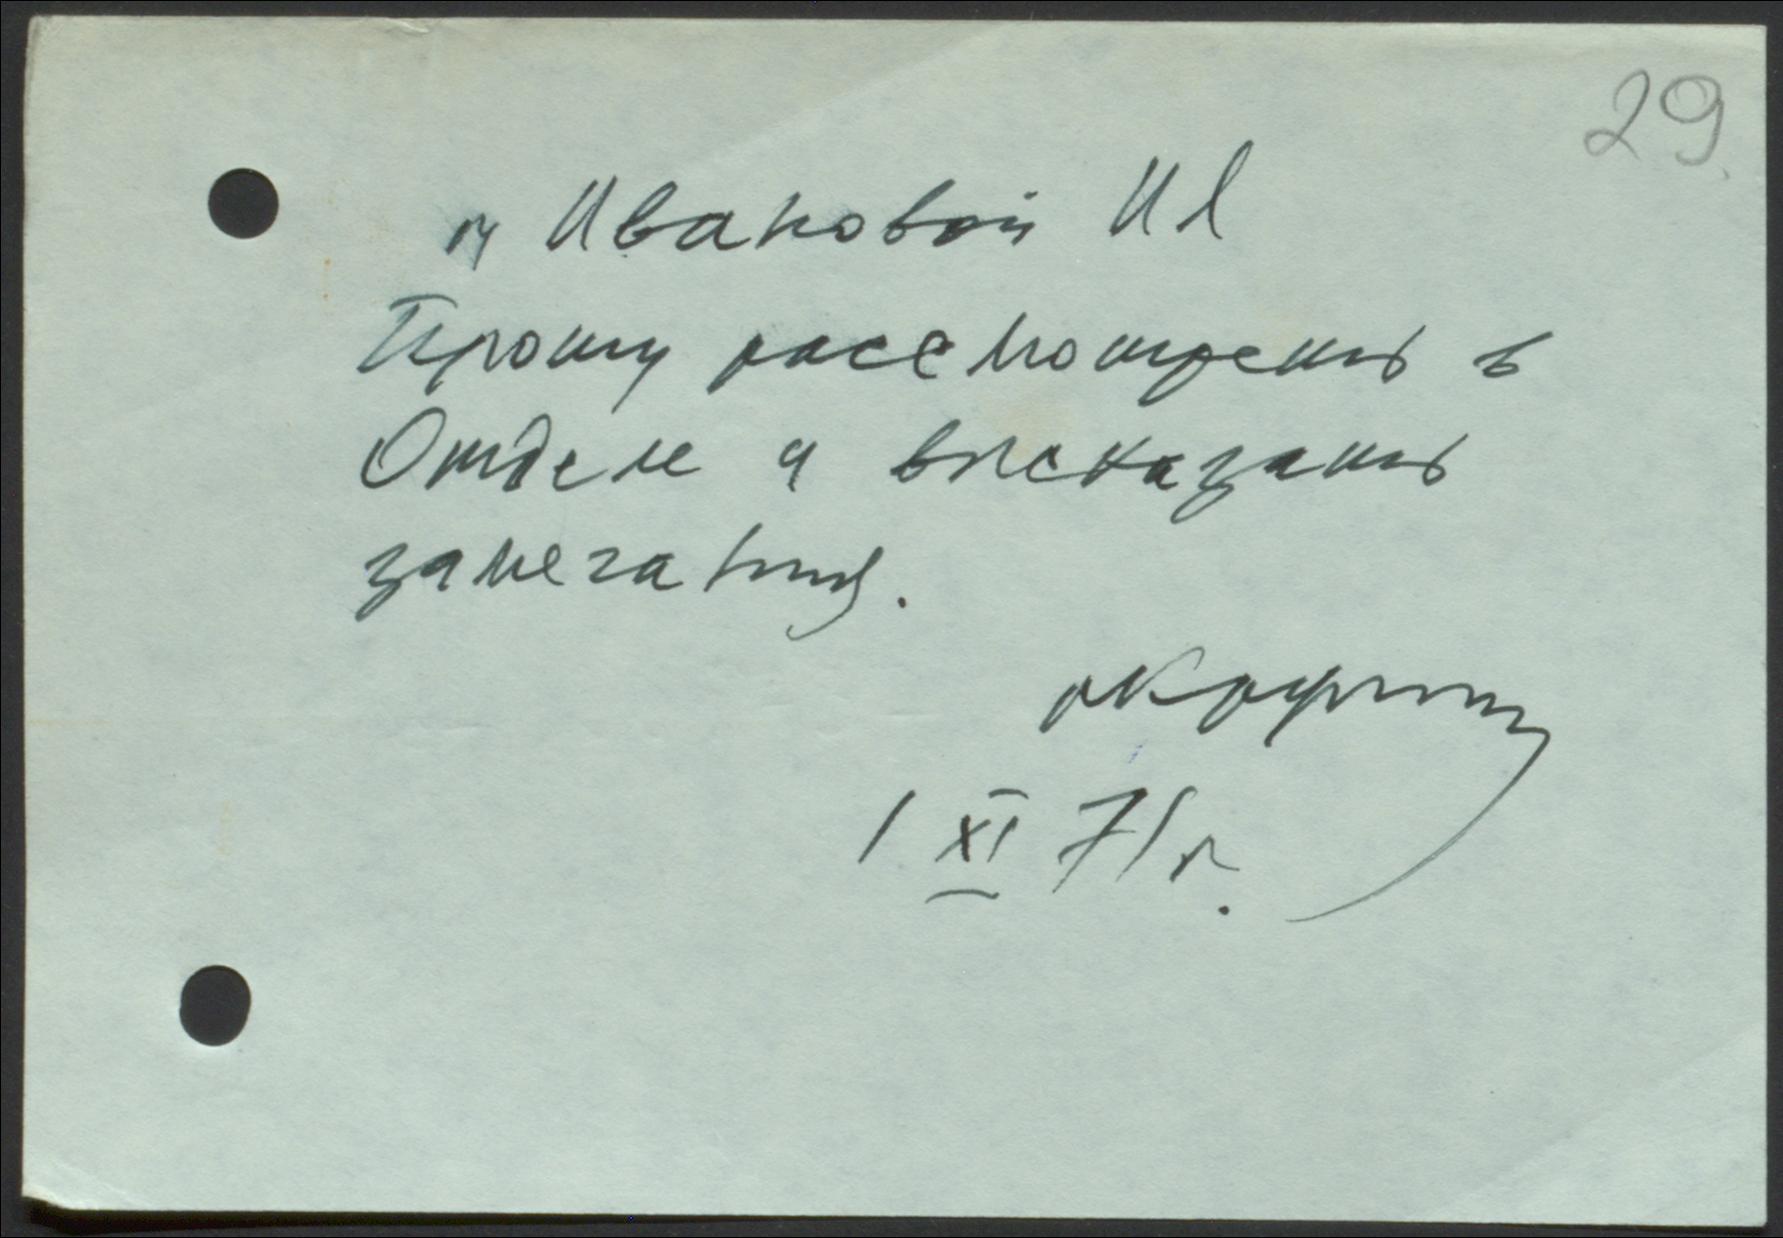 29
Ивановой И Л
Прошу рассмотреть в
Отделе и высказать
замечания.
1 XI 71 г.